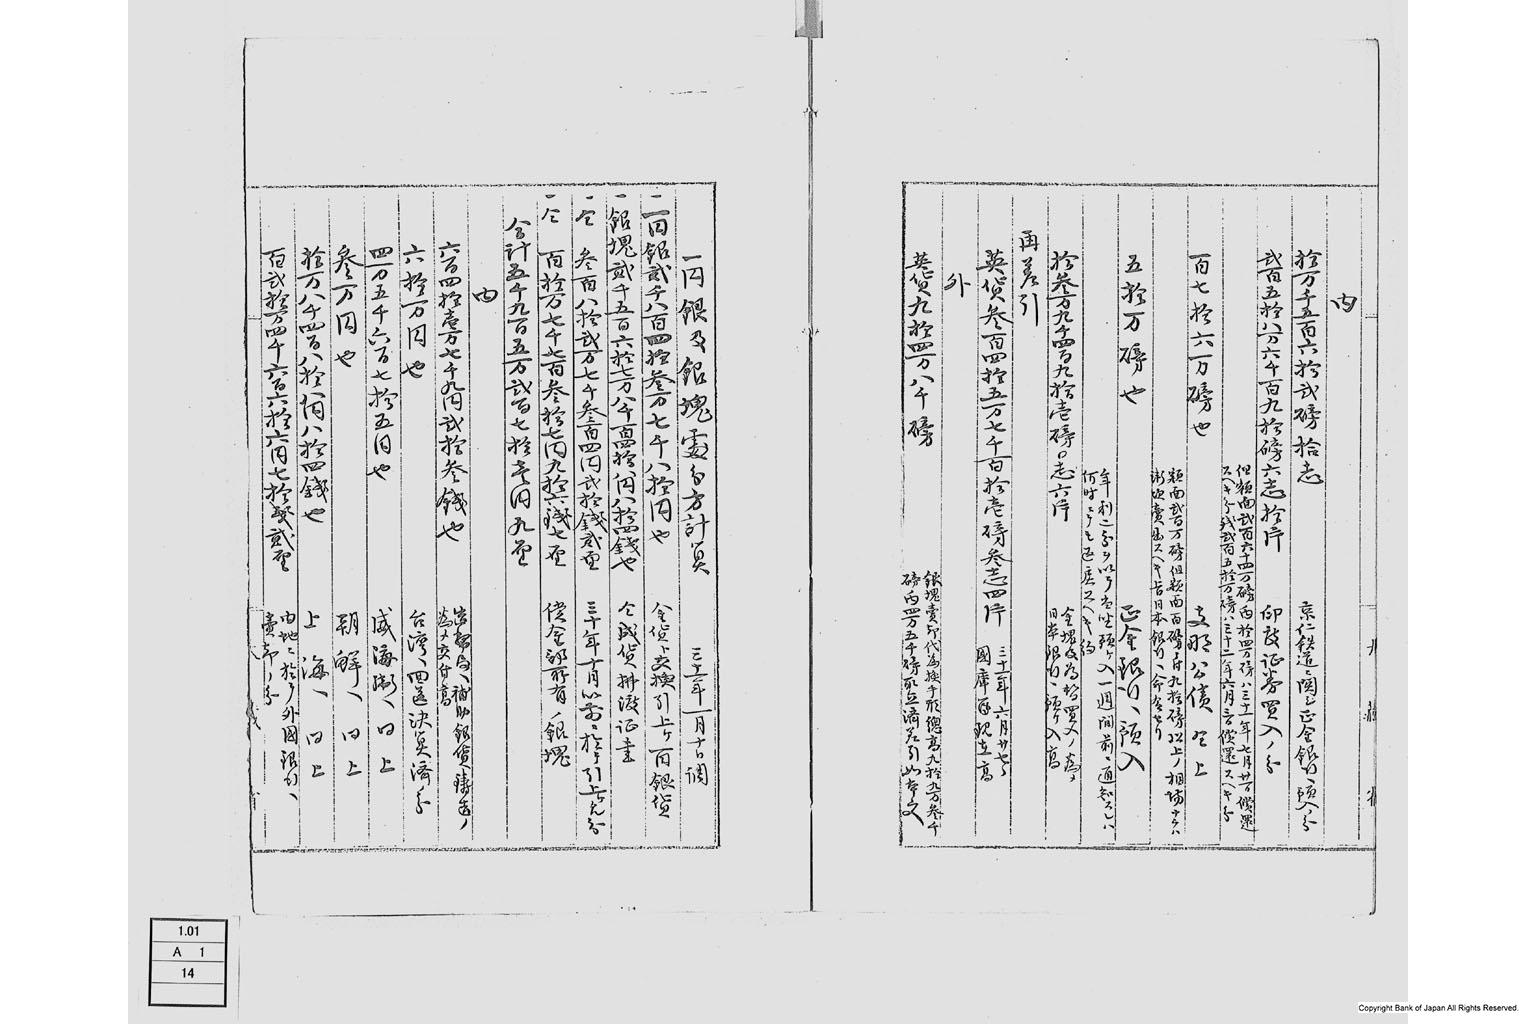 内
拾万千五百六拾弐磅拾志 京仁鉄道ニ関シ正金銀行ヘ預入ノ分
弐百五拾八万六千百九拾磅六志拾片 仰政証券買入ノ分
但額面弐百六十四万磅内拾四万磅ハ三十一年七月廿一日償還
スヘキ分残弐百五拾万磅ハ三十二年六月三日償還スヘキ分
百七拾六万磅也 支那公債買上
額面弐百万磅但額面百磅ニ付九拾磅以上ノ相場ナラハ
漸次売出スヘキ旨日本銀行ヘ命令セリ
五拾万磅也 正金銀行ヘ預入
年利二分ヲ以テ当座預ケ入一週間前ニ通知スレハ
何時ニテモ返戻スヘキ約
拾参万九千四百九拾壱磅〇志六片 金塊及為替買入ノ為メ
日本銀行ヘ預ケ入高
再差引
英貨参百四拾五万七千百拾壱磅参志四片 三十一年六月廿七日
国庫区現在高
外
英貨九拾四万八千磅 銀塊売却代為換手形総高九拾九万参千
磅内四万五千磅取立済差引如本文
一円銀及銀塊処分方計算 三十一年一月十日調
一 一円銀弐千八百四拾参万七千八拾円也 金貨ト交換引上ケ一円銀貨
一 銀塊弐千五百六拾七万八千百四拾八円八拾四銭也 仝成貨拂渡証書
一 仝 参百八拾弐万七千参百四円弐拾銭弐厘 三十年十月以前ニ於テ引上ケ之分
一 仝 百拾万七千七百参拾七円九拾六銭七厘 償金部所有ノ銀塊
合計五千九百五万弐百七拾壱円九厘
内
六百四拾壱万七千九円弐拾参銭也 造幣局ヘ補助銀貨鋳造ノ
為メ交付高
六拾一万円也 台湾ヘ回送決算済ノ分
四万五千六百七拾五円也 威海衛ヘ同上
参万円也 朝鮮ヘ同上
拾万八千四百八拾八円八拾四銭也 上海ヘ同上
百弐拾万四千六百六拾六円七拾銭弐厘 内地ニ於テ外国銀行ヘ
売却ノ分
1.01
A 1
14
Copyright Bank of Japan All Rights Reserved.